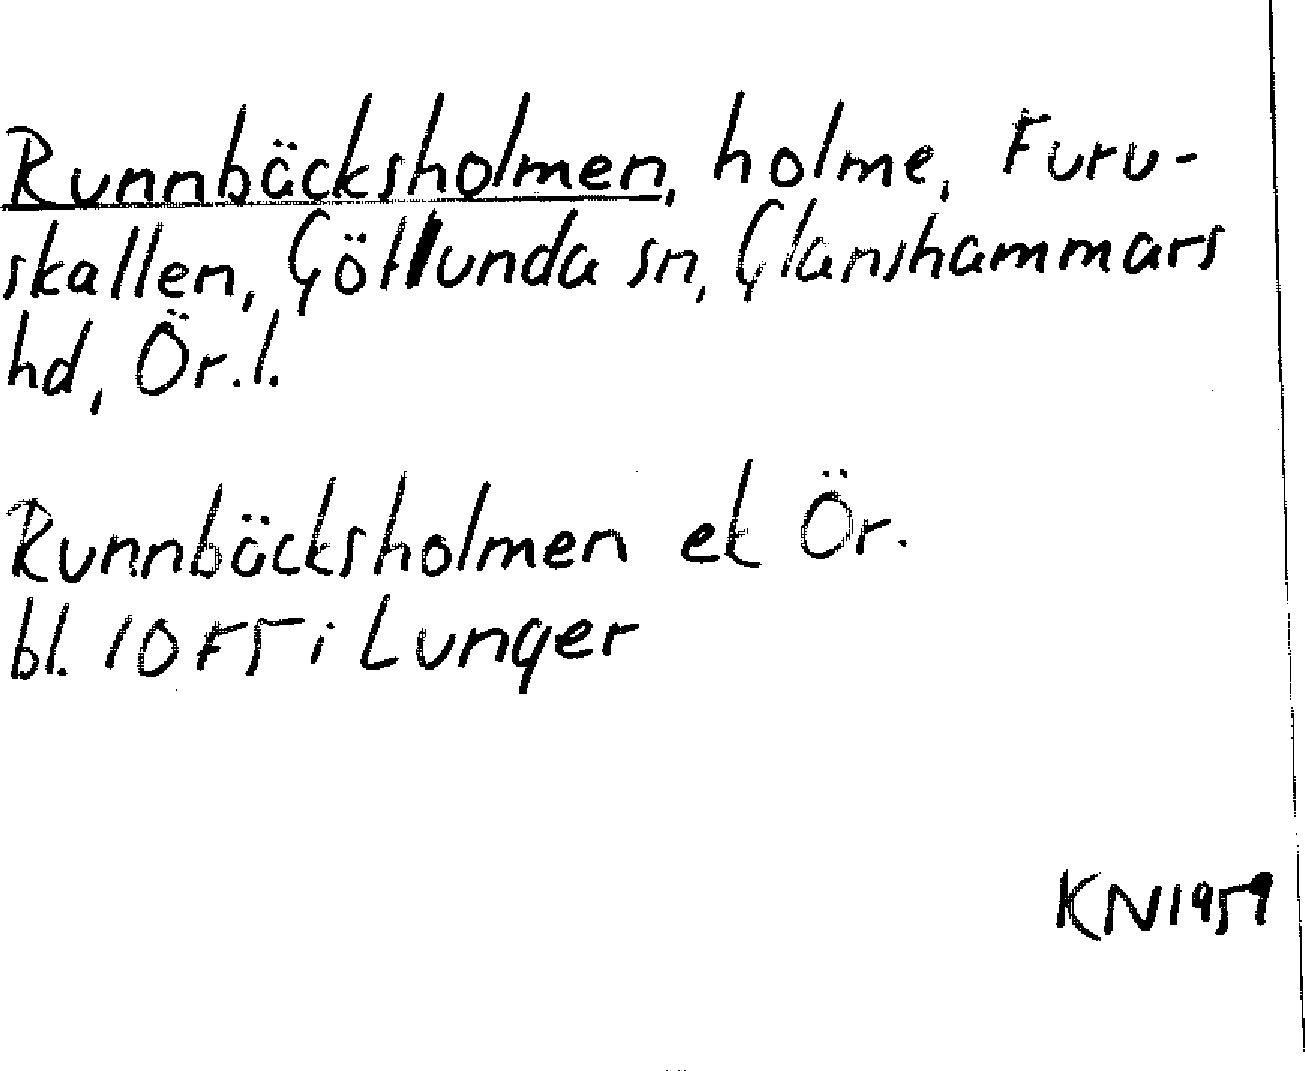 Runnbäcksholmen, holme, Furu-
skallen, Götlunda sn, Glanshammars
hd, Ör.l.
Runnbäcksholmen ek Ör.
bl. 10 F5 i Lunger
KN1959